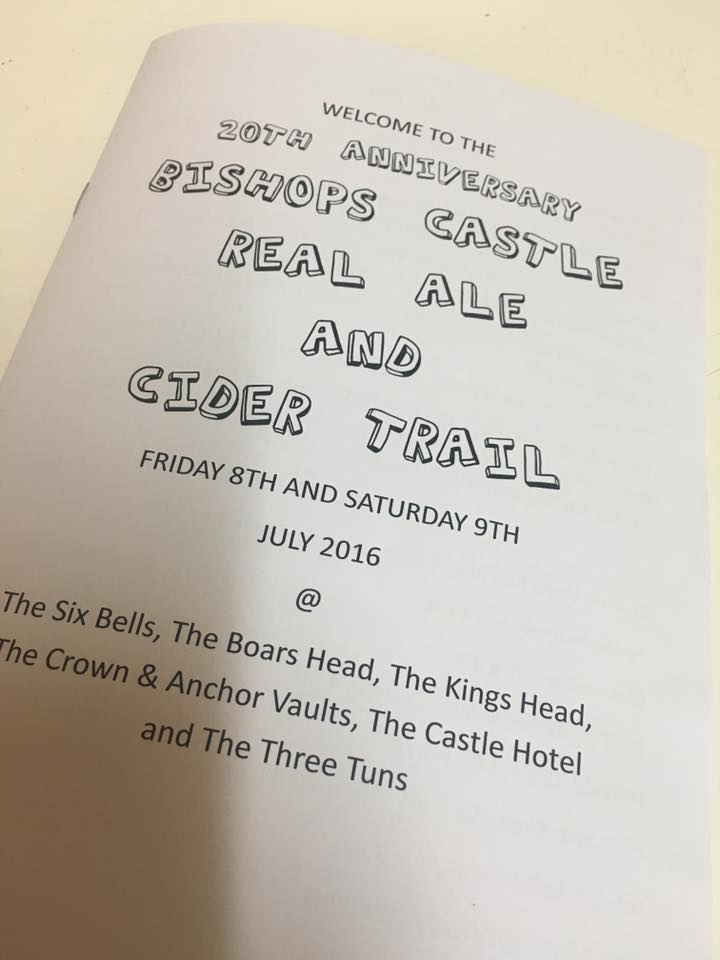 WELCOME TO THE
20TH ANNIVERSARY
BISHOPS CASTLE
REAL ALE
AND
CIDER TRAIL
FRIDAY 8TH AND SATURDAY 9TH
JULY 2016
@
The Six Bells, The Boars Head, The Kings Head,
The Crown & Anchor Vaults, The Castle Hotel
and The Three Tuns